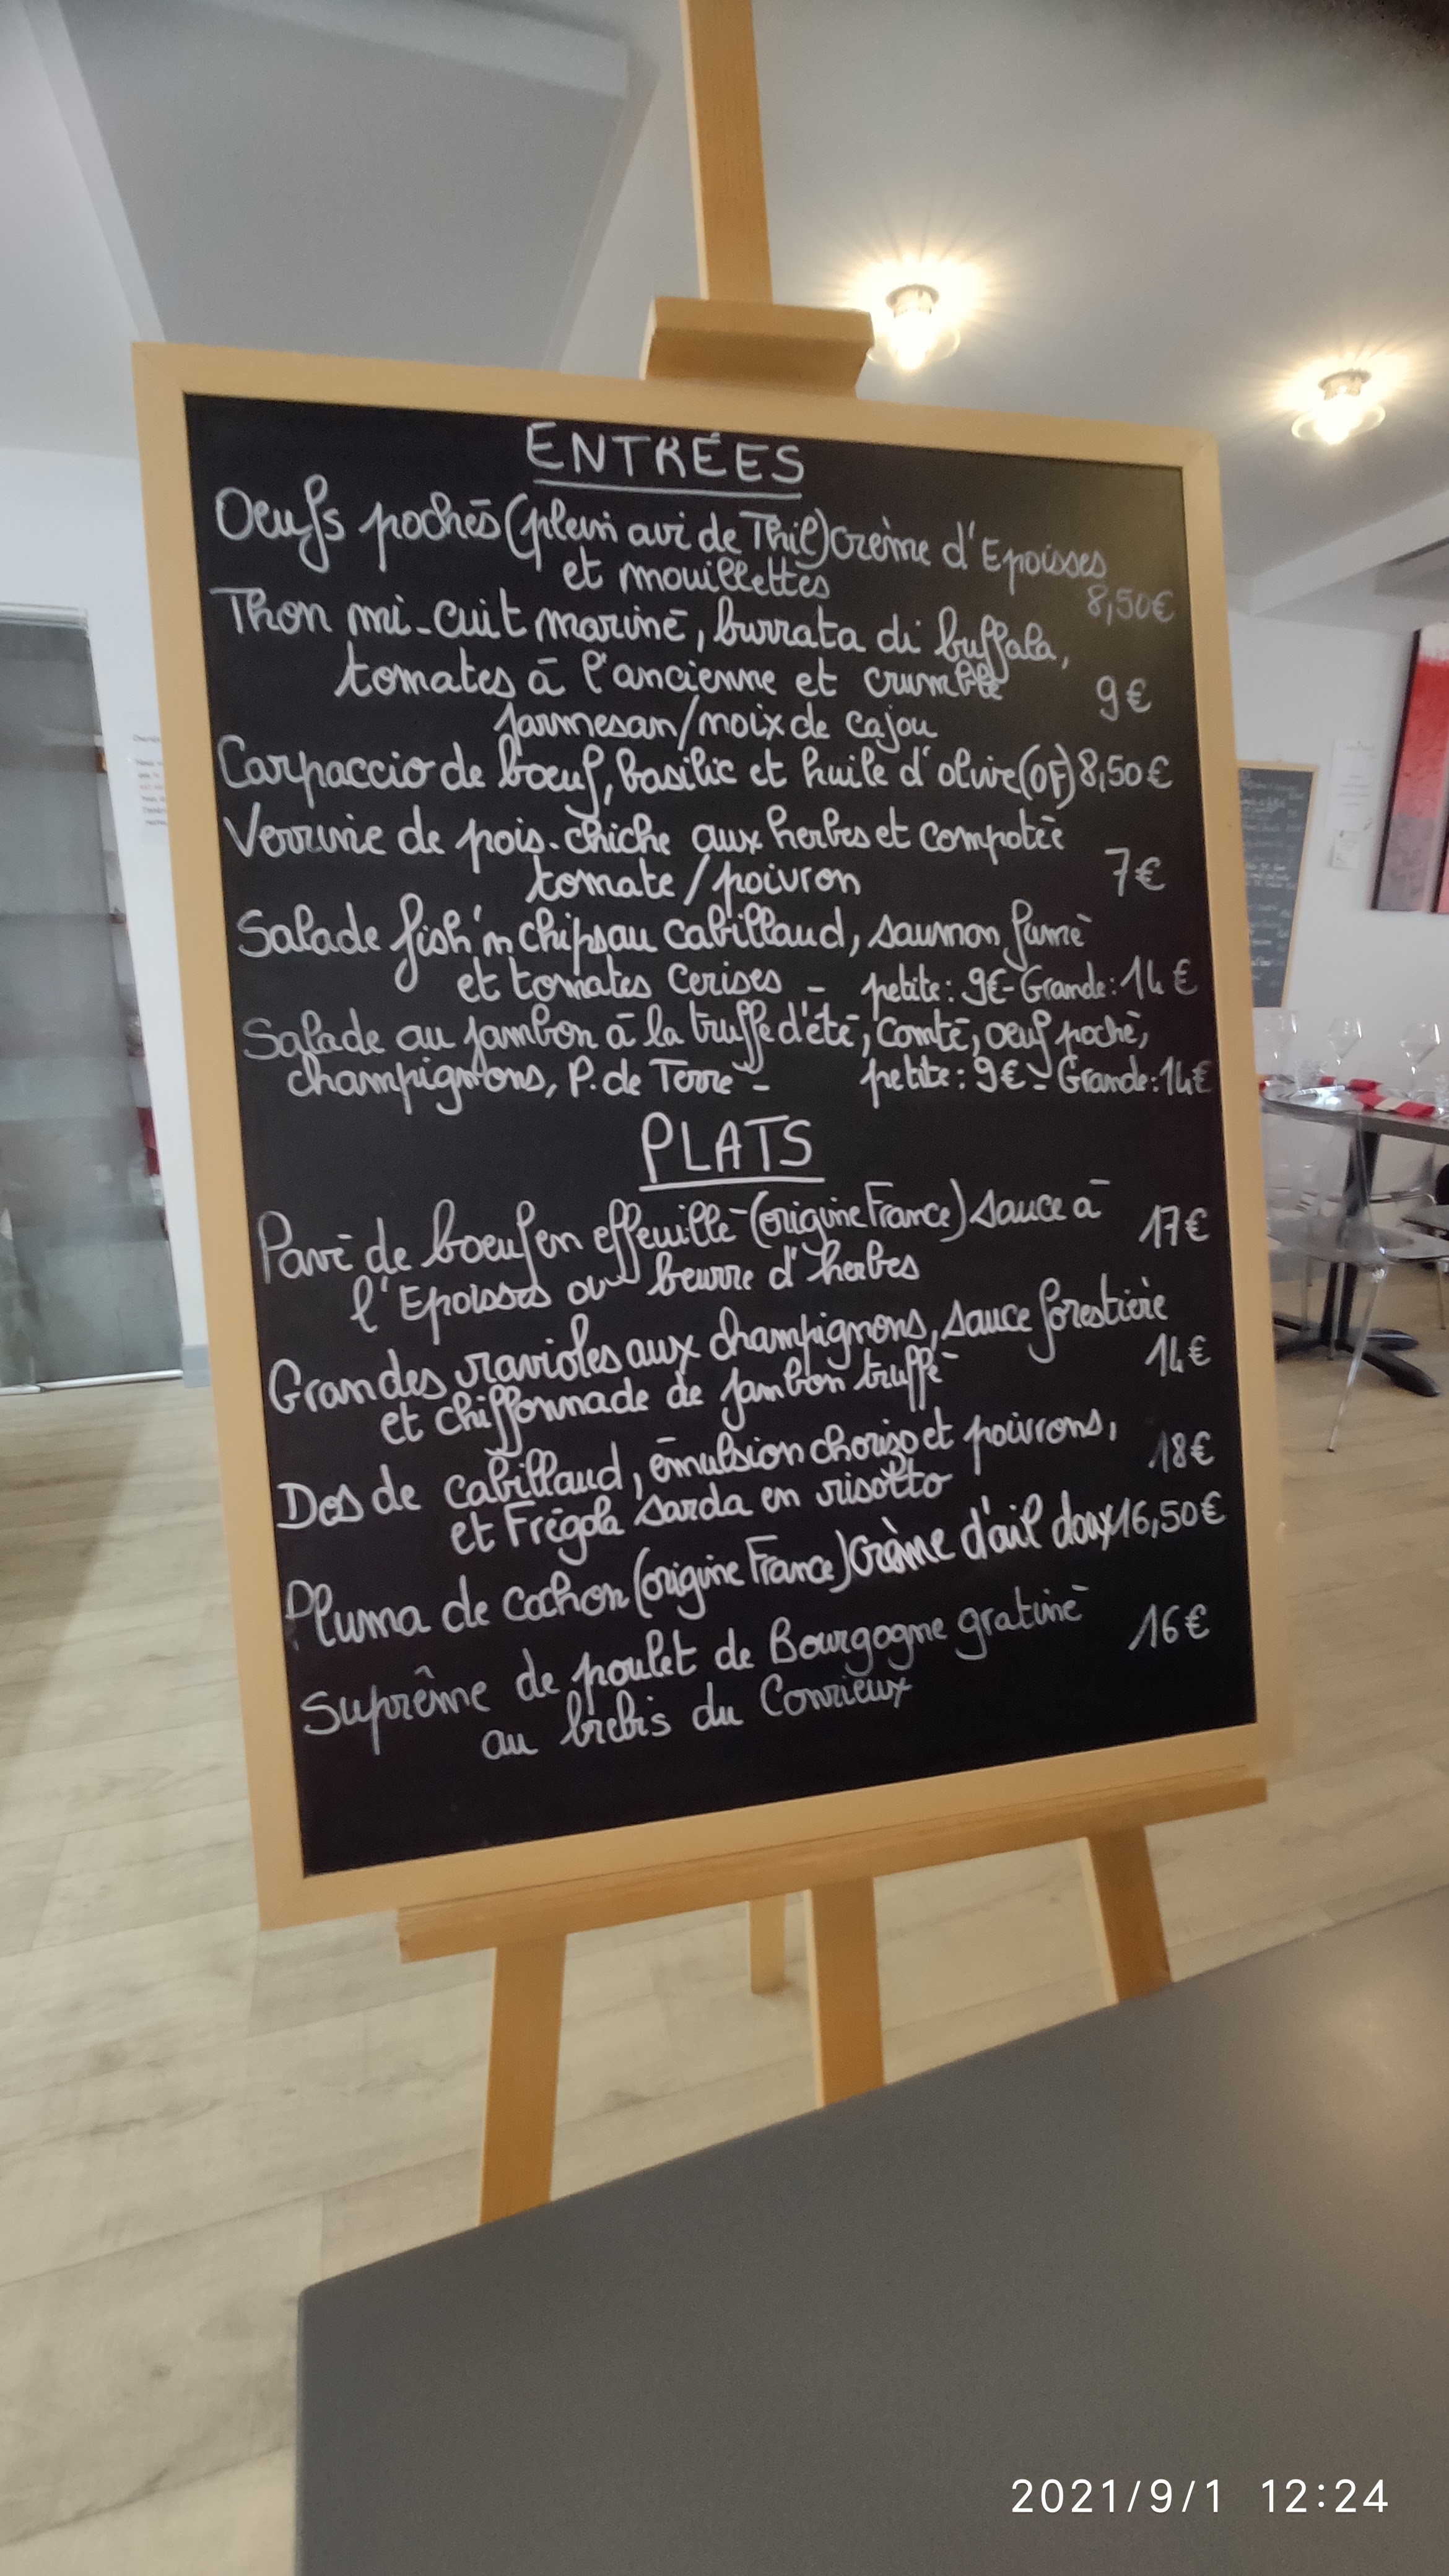 ENTRÉES
Oeufs pochés (plein air de Thil) crème d'Epoisses
et mouillettes
8,50€
Thon mi-cuit mariné, burrata di buffala,
tomates à l'ancienne et crumble
9€
parmesan/noix de cajou
Carpaccio de boeuf, basilic et huile d'olive (OF) 8,50€
Verrine de pois-chiche aux herbes et compotée
tomate/poivron
7€
Salade fish'n chips au cabillaud, saumon fumé
et tomates cerises - petite: 9€ - Grande: 14€
Salade au jambon à la truffe d'été, Comté, oeuf poché,
champignons, P. de Terre - petite: 9€ - Grande: 14€
PLATS
Pavé de boeuf en effeuillé (origine France) sauce à
17€
l'Epoisses ou beurre d'herbes
Grandes ravioles aux champignons, sauce forestière
14€
et chiffonnade de jambon truffé
Dos de cabillaud, émulsion chorizo et poivrons,
18€
et Frégola sarda en risotto
Pluma de cochon (origine France) Crème d'ail doux 16,50€
Suprême de poulet de Bourgogne gratiné
16€
au brebis du Conrieux
2021/9/1 12:24